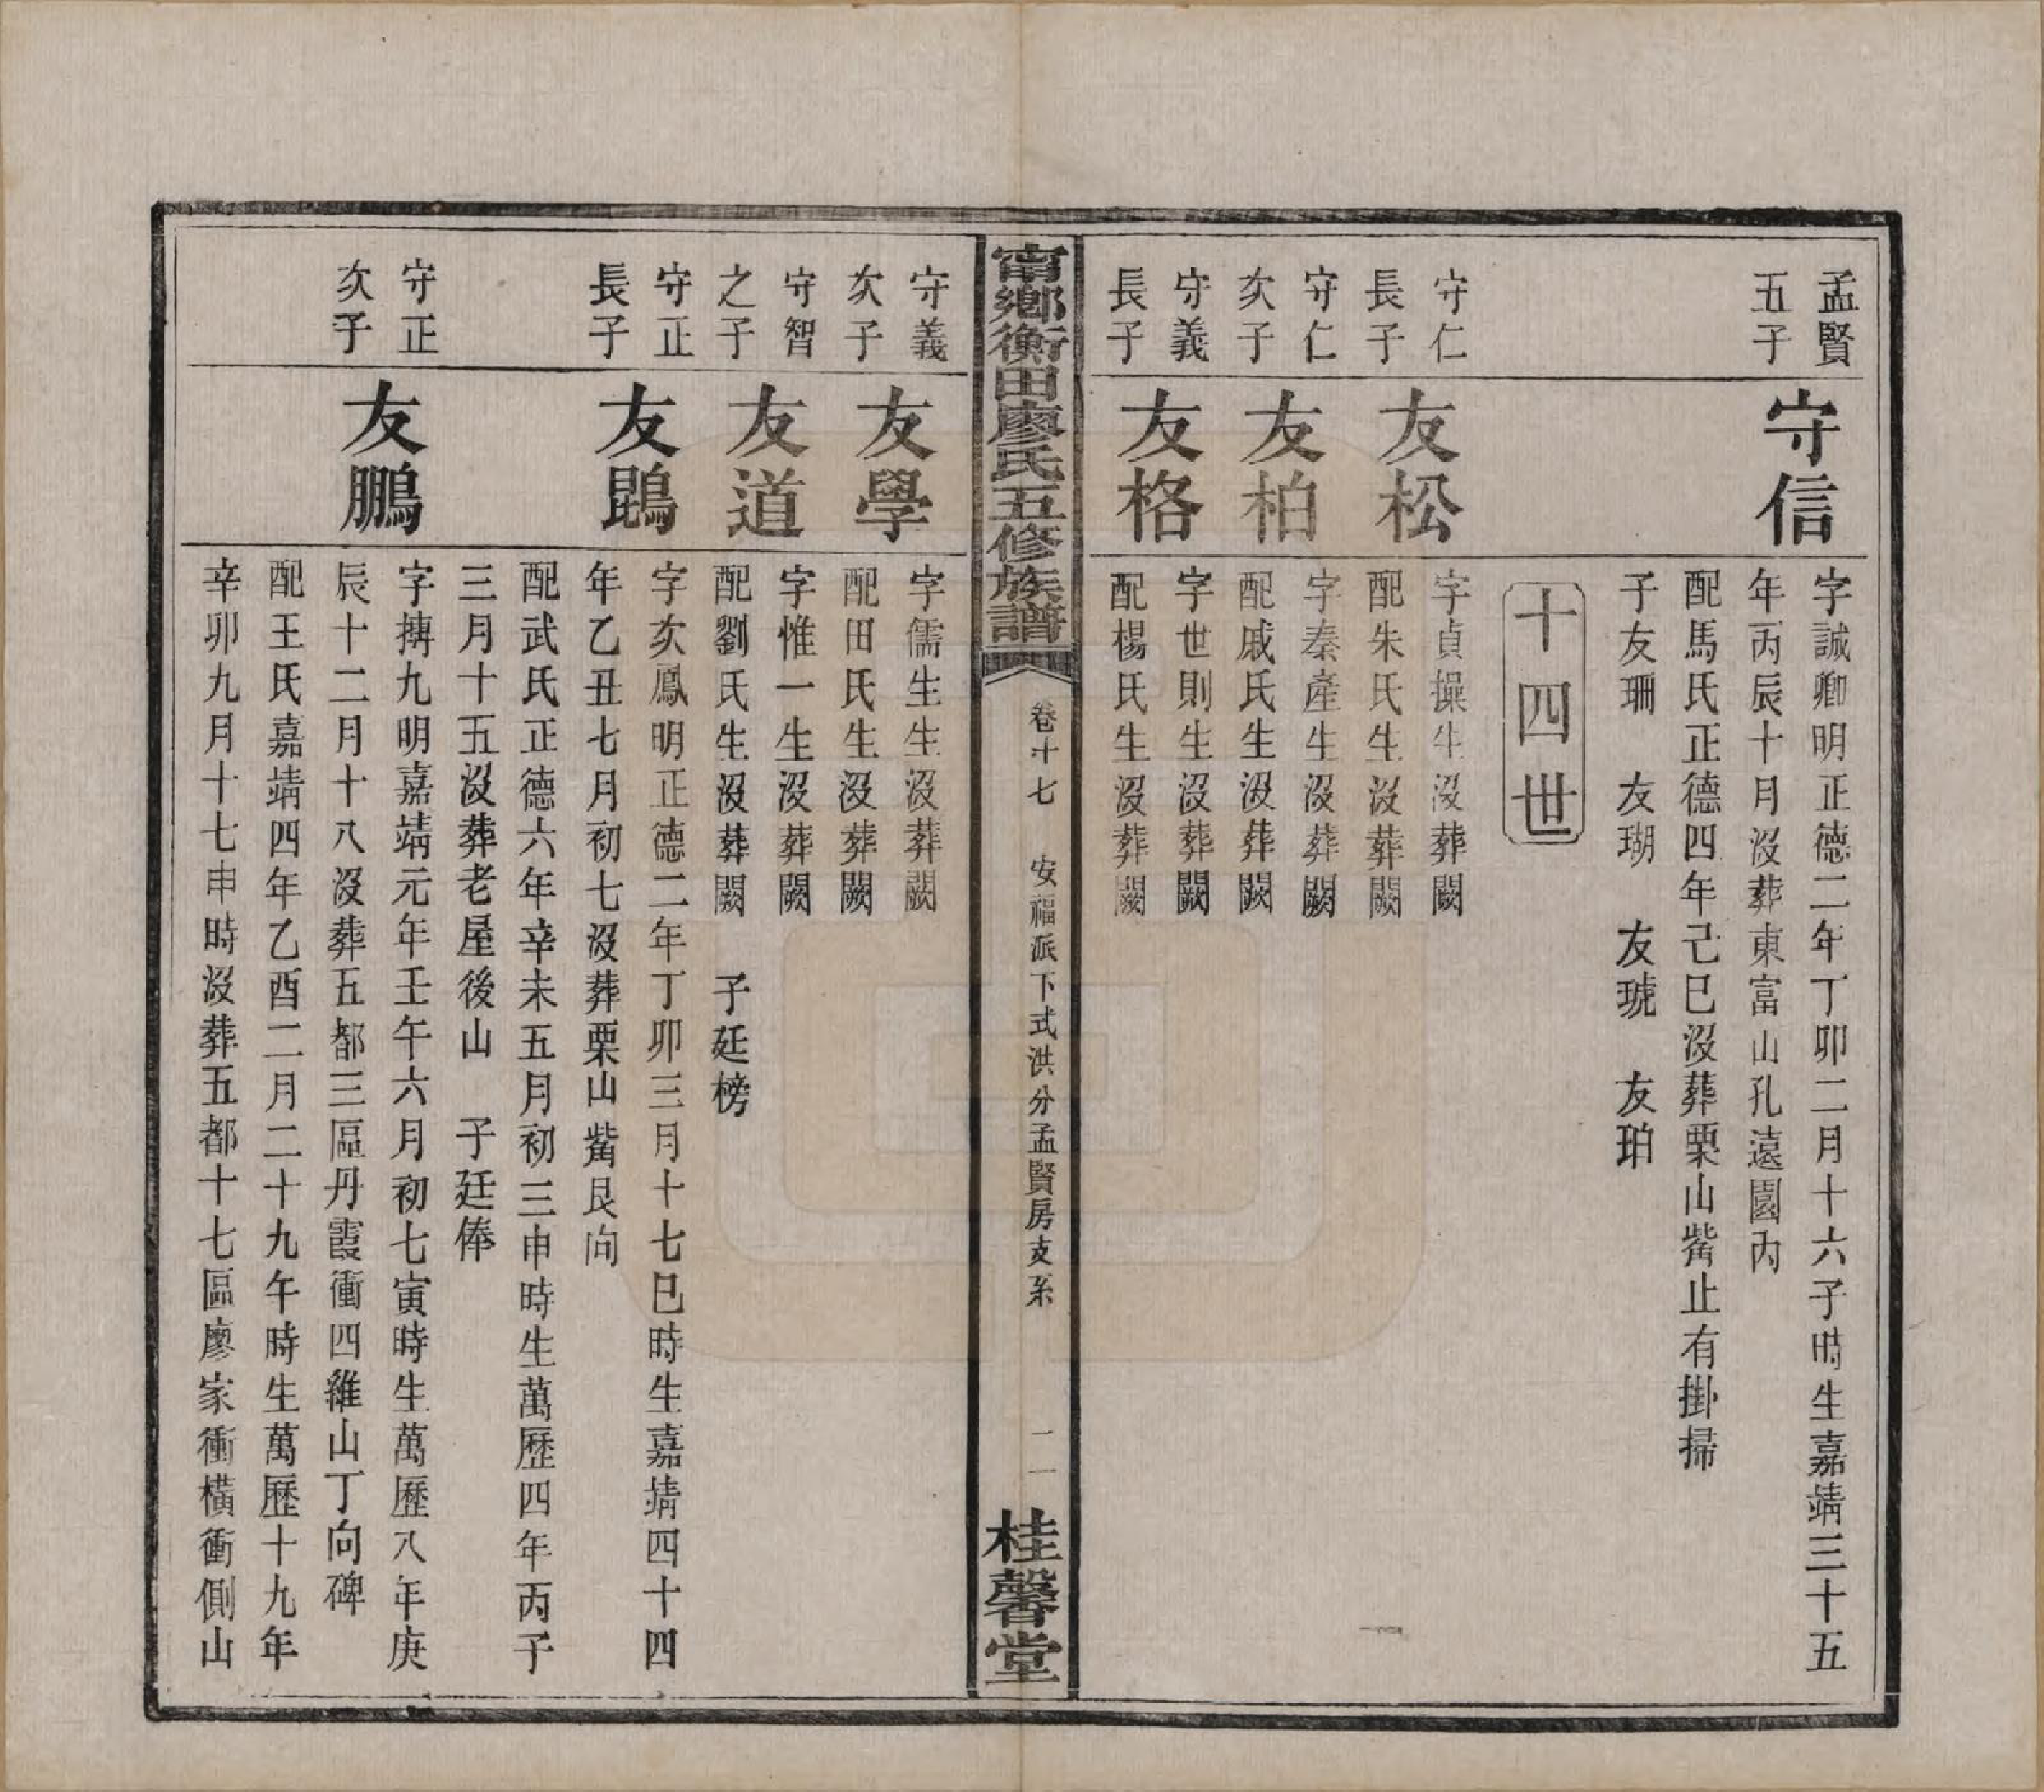 孟賢
五子
守信
字誠卿明正德二年丁卯二月十六子時生嘉靖三十五
年丙辰十月沒葬東富山孔遠園內
配馬氏正德四年己巳沒葬栗山觜止有掛掃
子友珊　友瑚　友琥　友珀
十四世
守仁
長子
友松
字貞操生沒葬闕
配朱氏生沒葬闕
守仁
次子
友柏
字秦產生沒葬闕
配戚氏生沒葬闕
守義
長子
友格
字世則生沒葬闕
配楊氏生沒葬闕
甯鄉衡田廖氏五修族譜
卷十七　安福派下式洪分孟賢房支系
二
桂馨堂
守義
次子
友學
字儒生生沒葬闕
配田氏生沒葬闕
守智
之子
友道
字惟一生沒葬闕
配劉氏生沒葬闕　子廷榜
守正
長子
友鵾
字次鳳明正德二年丁卯三月十七巳時生嘉靖四十四
年乙丑七月初七沒葬栗山觜艮向
配武氏正德六年辛未五月初三申時生萬歷四年丙子
三月十五沒葬老屋後山　子廷俸
守正
次子
友鵬
字摶九明嘉靖元年壬午六月初七寅時生萬歷八年庚
辰十二月十八沒葬五都三區丹霞衝四維山丁向碑
配王氏嘉靖四年乙酉二月二十九午時生萬歷十九年
辛卯九月十七申時沒葬五都十七區廖家衝橫衝側山